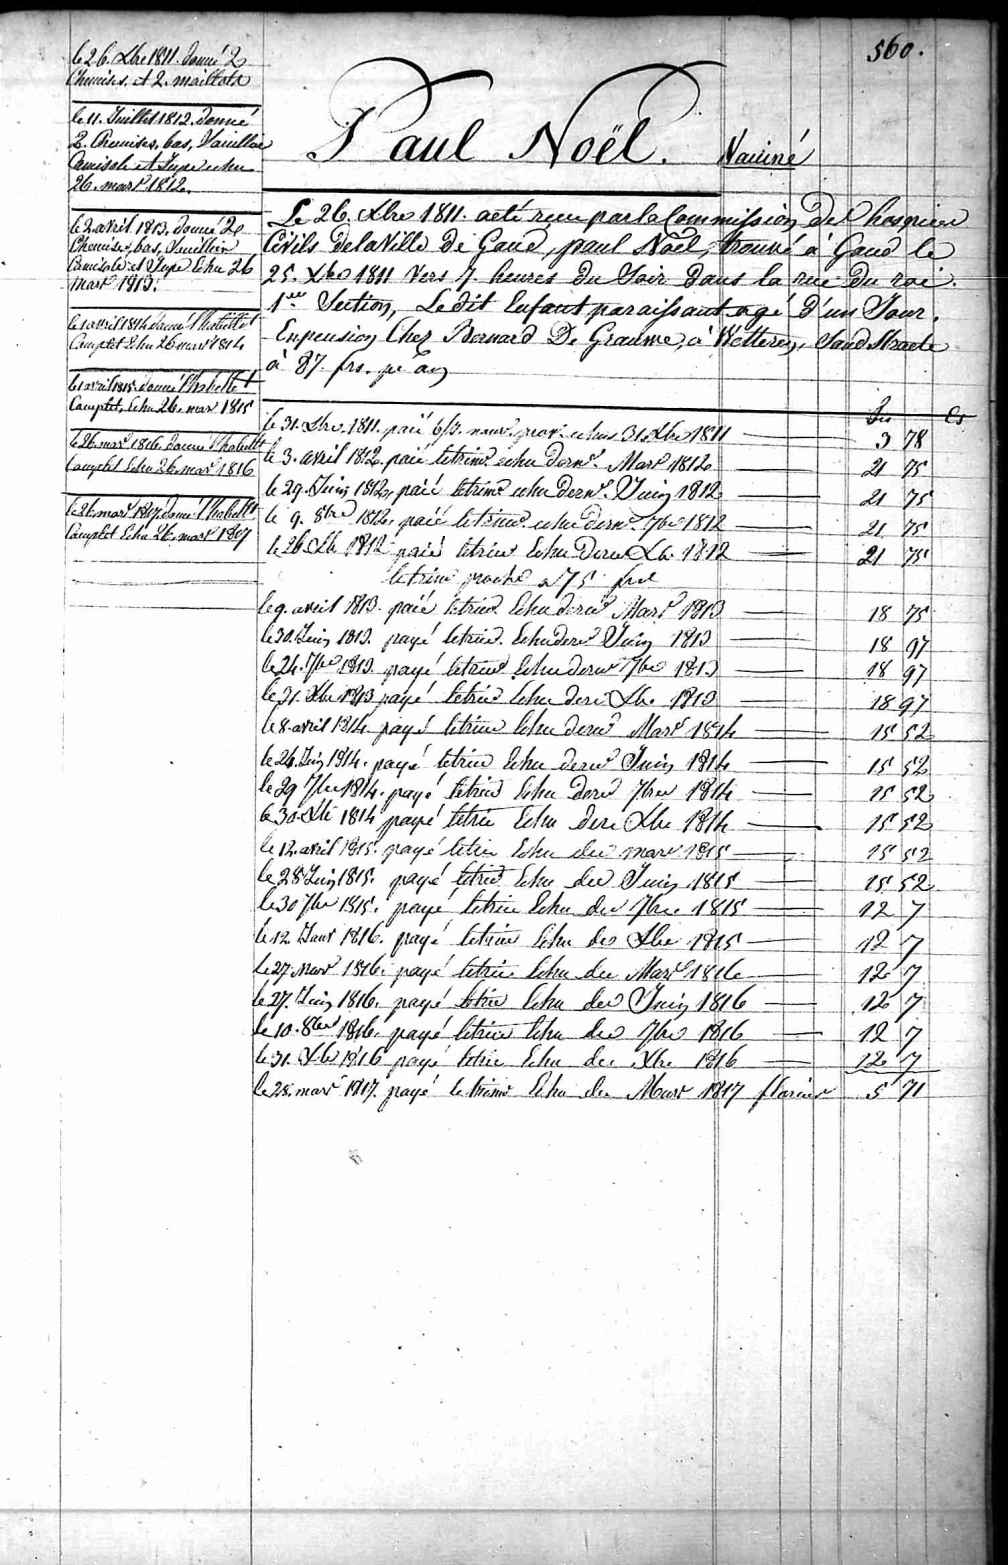 560.
le 26. Xbre 1811. donné 2
Chemises, et 2. maillots
le 11. Juillet 1812. donné
2. Chemises, bas,
Camisole et Jupe echu
26. mars 1812.
le 2 avril 1813. donné 2
Chemises, bas,
Camisole et Jupe Echu 26
mars 1813.
le 1 avril 1814 donné l'habillet
Complet Echu 26 mars 1814
le 1 avril 1815 donné l'habillet
Complet, Echu 26. mars 1815
le 26. mars 1816. donné l'habillet
Complet Echu 26. mars 1816
le 26. mars 1817. donné l'habillet
Complet Echu 26. mars 1807
Paul Noël. Vacciné
Le 26. Xbre 1811. a été reçu par la Commission des hospices
Civils de la Ville de Gand, paul Noël, trouvé à Gand le
25. Xbre 1811 vers 7. heures du Soir dans la rue du roi.
1ere Section, Ledit Enfant paraissant agé d'un Jour.
En pension Chez Bernard De Graeume, à Wetteren,
à 87. frs. pr an
frs Cs
le 31. Xbre. 1811. paié echus 31 Xbre 1811 3 78
le 3. avril 1812. paié letrimr. echu dernr. Mars 1812 21 75
le 29. Juin 1812. paié letrimr echu dernr. Juin 1812 21 75
le 9. 8bre 1812. paié letrimr. echu dernr. 7bre 1812 21 75
le 26 Xb. 1812 paié letrimr Echu dernr Xbr 1812 21 75
letrimr a 75 frs
le 9. avril 1813. paié letrimr Echu dernr Mars 1813 18 75
le 30. Juin 1813. payé letrimr. Echu dernr Juin 1813 18 97
le 24. 7bre 1813. payé letrimr Echu dernr 7bre 1813 18 97
le 31. Xbre 1813 payé letrimr Echu dernr Xbre 1813 18 97
le 8. avril 1814. payé letrimr Echu dernr Mars 1814 15 52
le 26. Juin 1814. payé letrimr Echu dernr Juin 1814 15 52
le 29 7bre 1814. payé letrimr Echu dernr 7bre 1814 15 52
le 30. Xbr 1814 payé letrimr Echu dernr Xbre 1814 15 52
le 12. avril 1815. payé letrimr Echu der mars 1815 15 52
le 28 Juin 1815. payé letrimr Echu der Juin 1815 15 52
le 30 7bre 1815. payé letrimr Echu der 7bre. 1815 12 7
le 12. Janr 1816. payé letrimr Echu der Xbre 1815 12 7
le 27. Mars 1816. payé letrimr Echu der Mars 1816 12 7
le 27. Juin 1816. payé letrimr Echu der Juin 1816 12 7
le 10. 8bre 1816. payé letrimr Echu der 7bre 1816 12 7
le 31. Xbr 1816 payé letrimr Echu der Xbre 1816 12 7
le 28. mars 1817. payé le trimr Echu der Mars 1817 florins 5 71